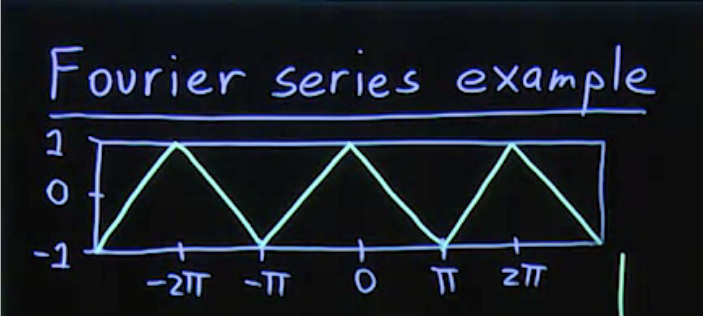 Fourier series example
1
0
-1
-2π -π 0 π 2π